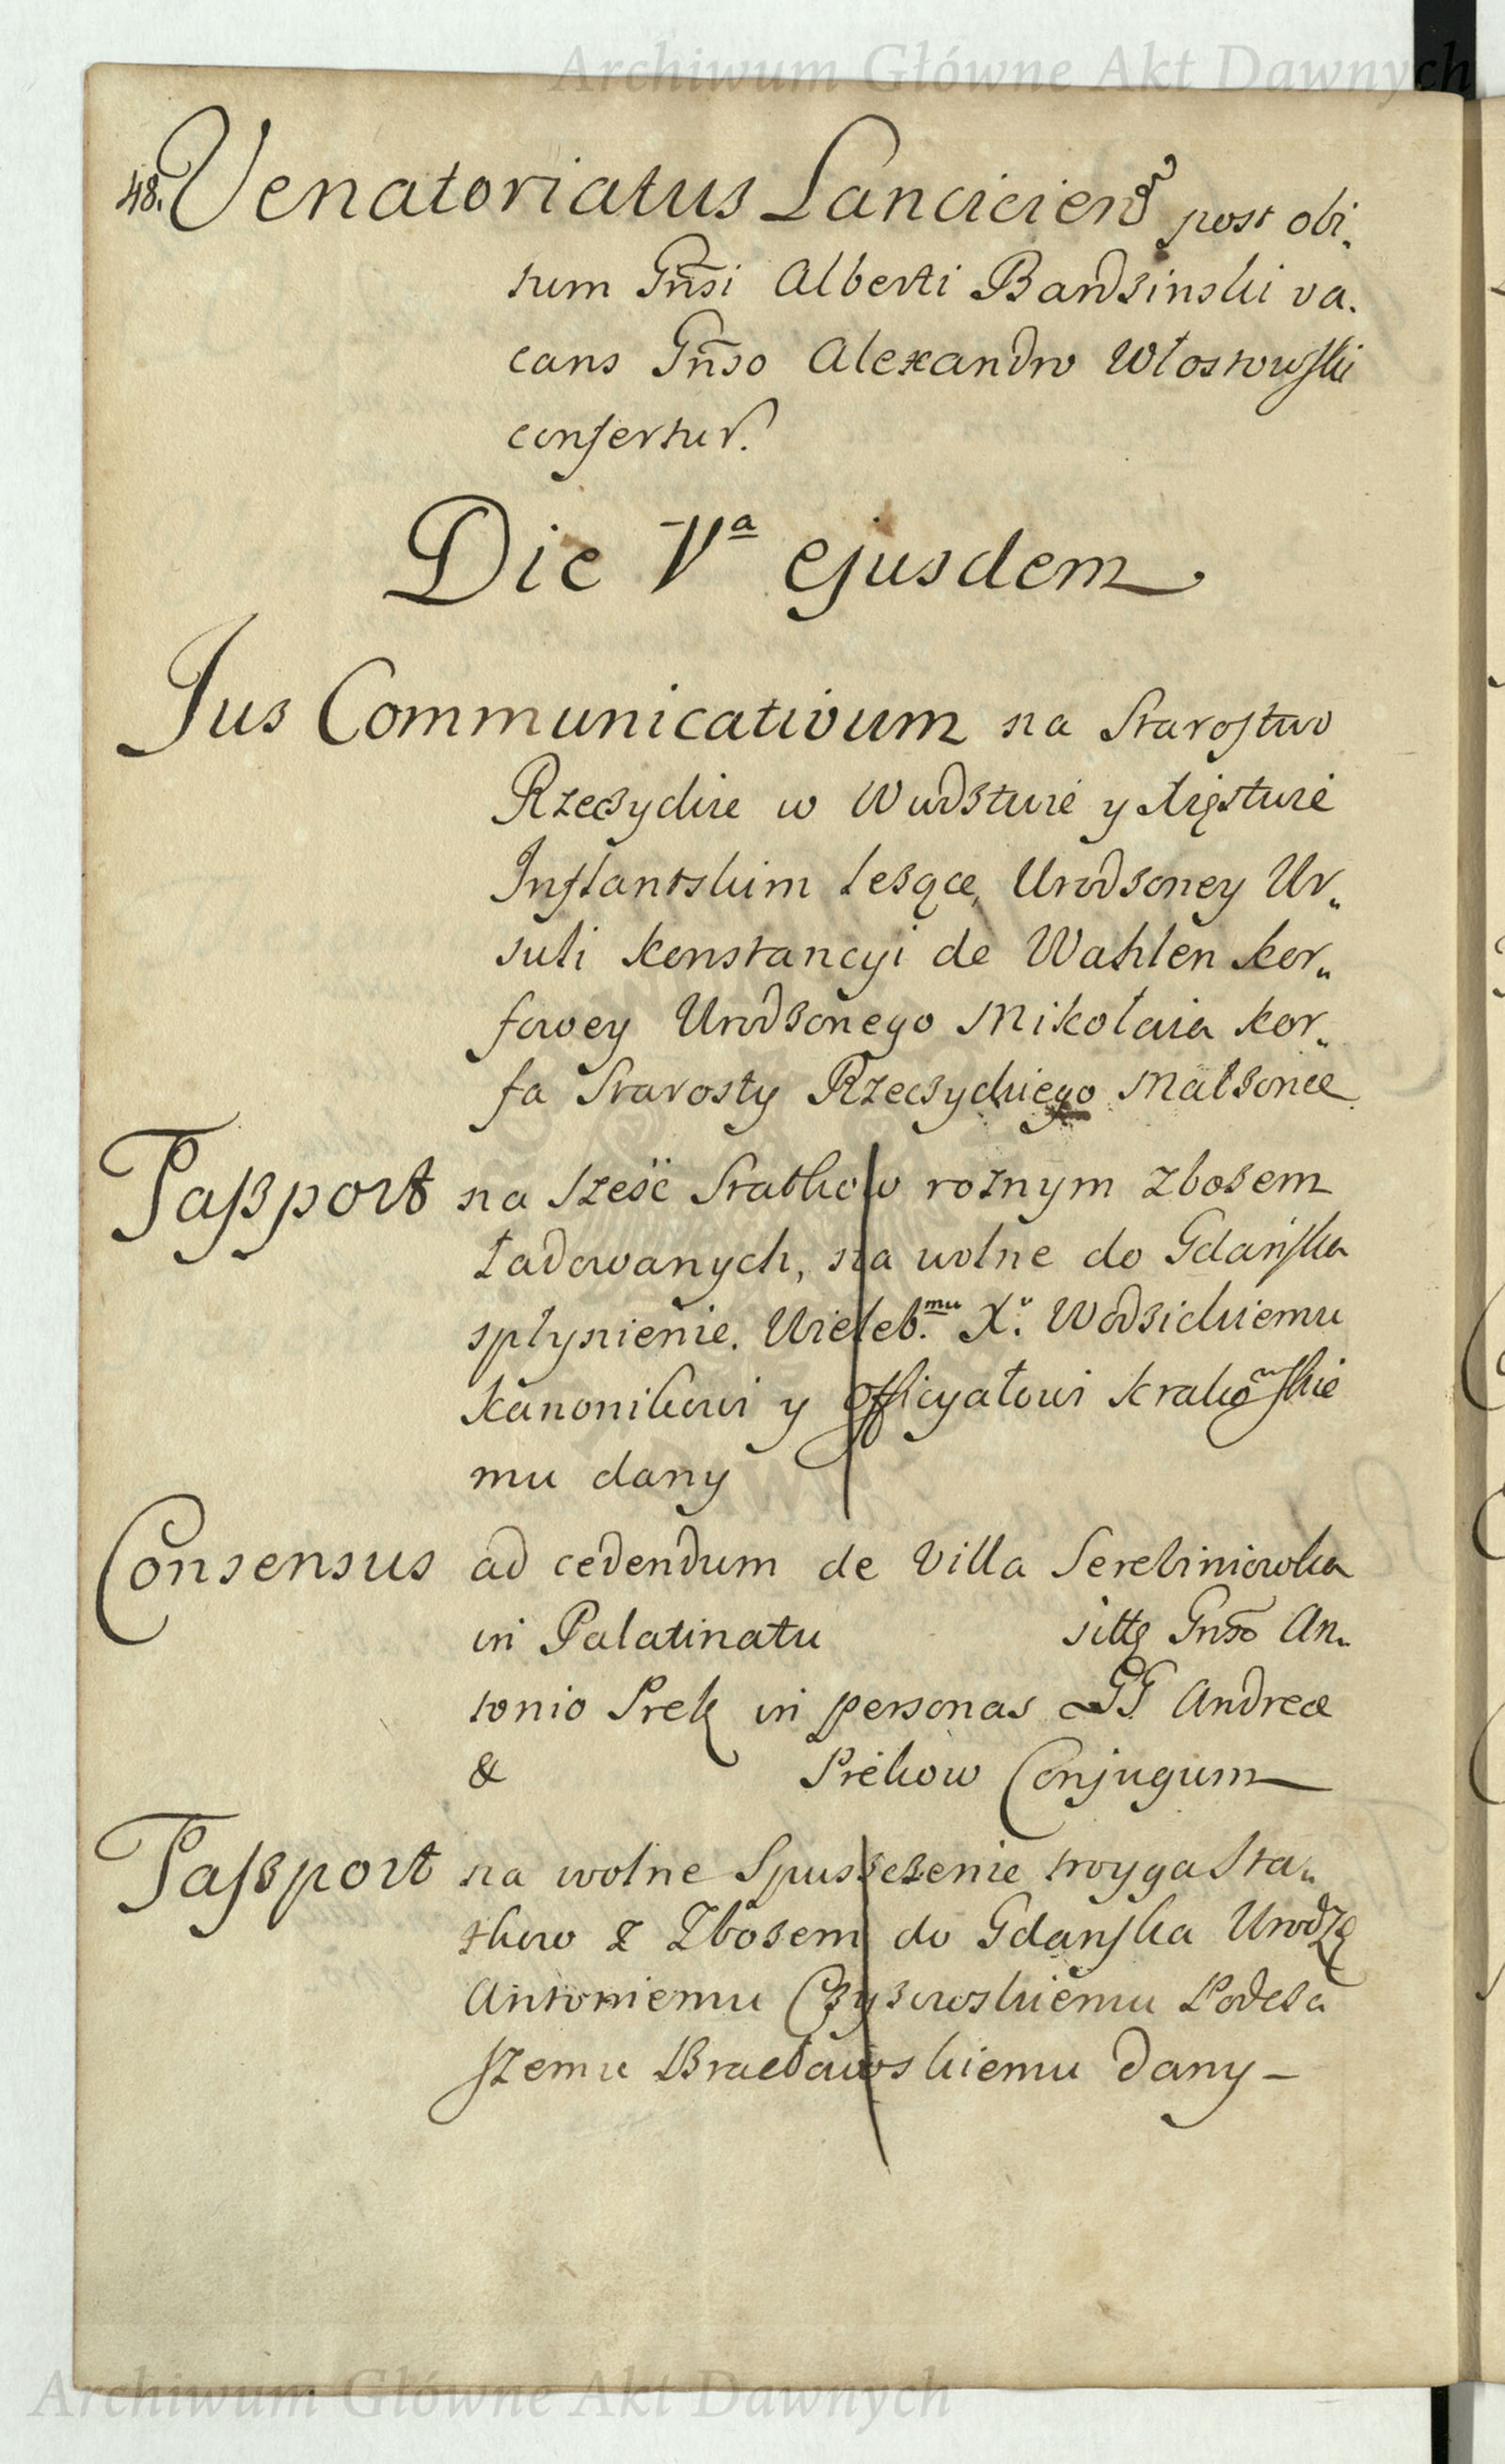 Archiwum Główne Akt Dawnych
48. Venatoriatus Lanciciens post obi„
tum Gñsi Alberti Bardzinski va„
cans Gñso Alexandro Włostowski
confertur.
Die Vª ejusdem
Jus Communicativum na Starostwo
Rzeczyckie w Wudztwie y Xięstwie
Inflantskim leżące, Urodzoney Ur„
suli Konstancyi de Wahlen Kor„
fowey Urodzonego Mikołaia Kor„
fa Starosty Rzeczyckiego Małżonce
Paßport na sześć Statkow rożnym zbożem
ładowanych, na wolne do Gdańska
spłynienie. Wieleb.mu X.u Wodzickiemu
Kanonikowi y Officyałowi Krakowskie
mu dany
Consensus ad cedendum de Villa Serebiniowka
in Palatinatu sittę Gnso An„
tonio Prek in personas GG Andreæ
& Prekow Conjugum
Paßport na wolne Spuszczenie troyga Sta„
tkow z Zbożem do Gdanska Urodz
Antoniemu Czyżowskiemu Podcza
szemu Bracławskiemu dany –
Archiwum Główne Akt Dawnych